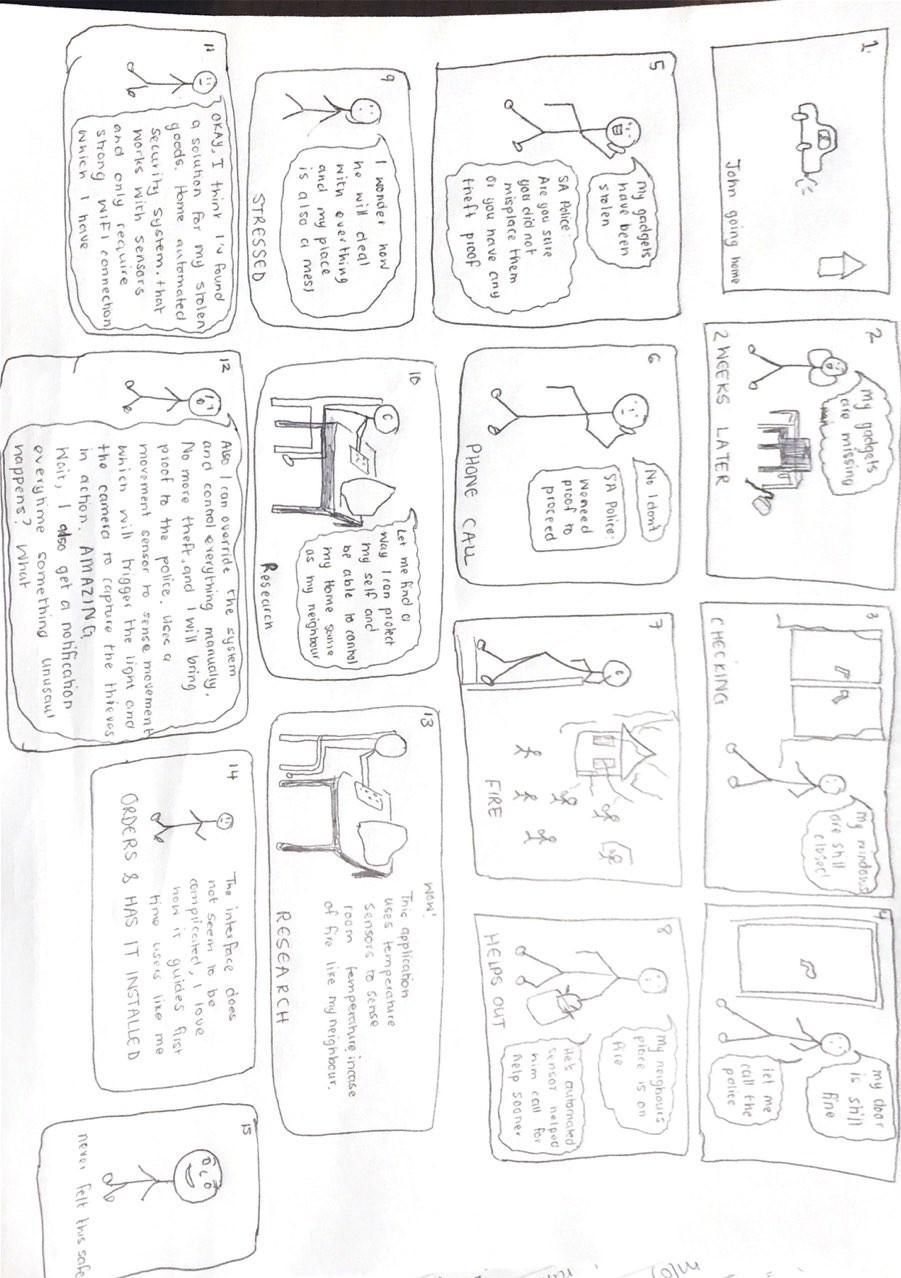 1.
John going home
2
My gadgets
are missing
2 WEEKS LATER
3
my windows
are still
closed!
CHECKING
4
my door
is still
fine
let me
call the
police
5
My gadgets
have been
stolen
SA Police:
Are you sure
you did not
misplace them
or you have any
theft proof
6
No I don't
SA Police:
we need
proof to
proceed
PHONE CALL
7
FIRE
8
my neighours
place is on
fire
He's automated
sensor helped
him call for
help sooner
HELPS OUT
9
I wonder how
he will deal
with everthing
and my place
is also a mess
STRESSED
10
Let me find a
way I can protect
my self and
be able to control
my Home same
as my neighbour
Research
11
OKAY, I think I've found
a solution for my stolen
goods. Home automated
security system. that
works with sensors
and only require
strong WIFI connection
which I have
12
Also I can override the system
and control everything manually.
No more theft, and I will bring
proof to the police. Uses a
movement sensor to sense movement
which will trigger the light and
the camera to capture the thieves
in action. AMAZING
Wait, I also get a notification
everytime something unusaul
happens? What
13
WOW!
This application
uses temperature
sensors to sense
room temperature incrase
of fire like my neighbour.
RESEARCH
14
The interface does
not seem to be
complicated, I love
how it guides first
time users like me
ORDERS & HAS IT INSTALLED
15
never felt this safe